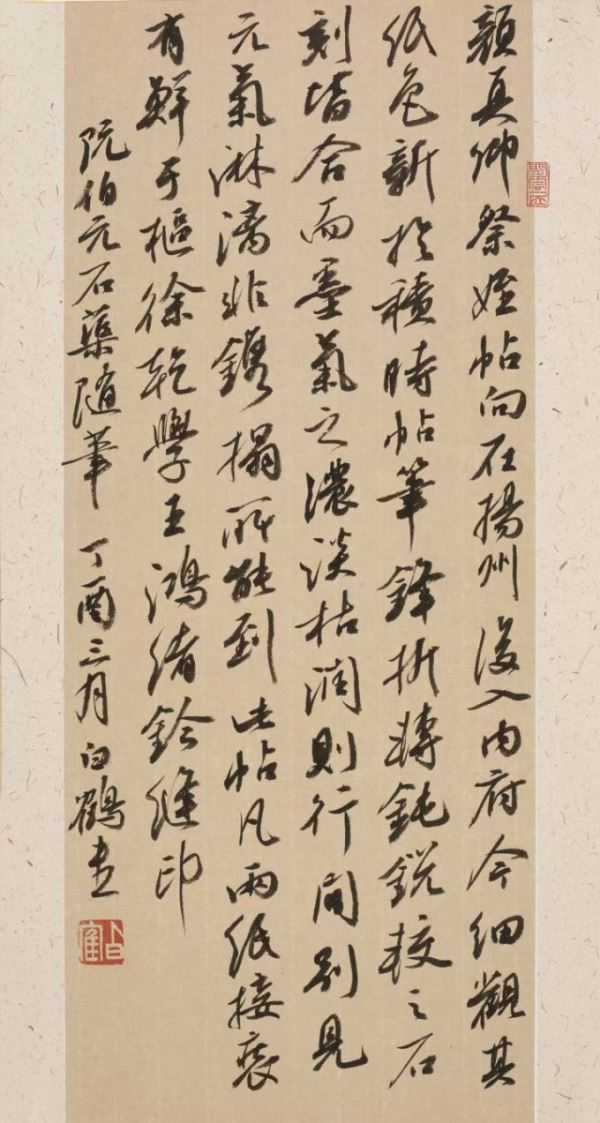 顏真卿祭姪帖向在揚州後入內府今細觀其
紙色新於積時帖筆鋒折轉鈍銳校之石
刻皆合而墨氣之濃淡枯潤則行間別見
元氣淋漓非鐫搨所能到此帖凡兩紙接
有鮮于樞徐乾學王鴻緒鈐縫印
阮伯元石渠隨筆 丁酉三月白鶴書